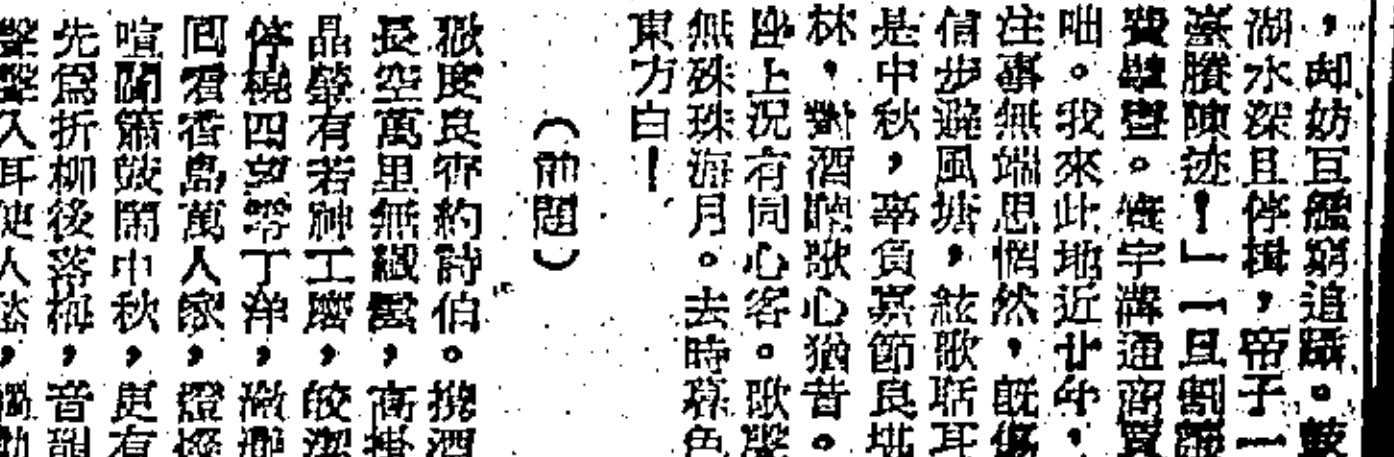 ，却妨互艦窮追躡。鼓
湖水深且停楫，帝子一
臺賸陳迹！」一旦割讓
費
。
宇
通商
咄。我來此地近廿年，
注事無端思惘然，旣傷
信步避風塘，絃歌聒耳
是中秋，辜負嘉節良
林，對酒聽歌心猶昔。
座上況有同心客。歌聲
無殊珠海月。去時暮色
東方白！
（前題）
歡度良宵約詩伯。攜酒
長空萬里無纖雲，高掛
晶瑩有若神工磨，皎潔
停橈四望零丁洋，
回看香島萬人家，燈
喧闐簫鼓鬧中秋，更有
先爲折柳後落梅，音韻
聲聲入耳使人愁，觸動